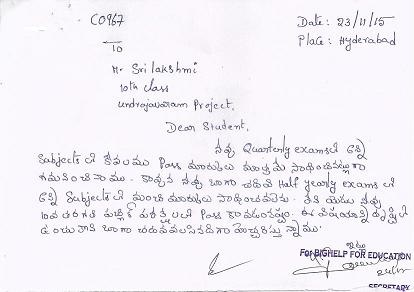 C0967
10
Date: 23/11/15
Place: Hyderabad
M. Srilakshmi
10th class
Undrajavaram Project.
Dear Student,
నువ్వు Quarterly examsలో కొన్ని
Subjects లో కేవలము Pass మార్కులు మాత్రమే సాధించినట్లుగా
గమనించినాము. కావున నువ్వు బాగా చదివి Half yearly exams లో
కొన్ని Subjects లో మంచి మార్కులు సాధించవలెను.
10వ తరగతి పబ్లిక్ పరీక్షలలో Pass కావలసినది. ఈ విషయాన్ని దృష్టిలో
ఉంచుకొని బాగా చదవవలసినదిగా హెచ్చరిస్తున్నాము.
For BIGHELP FOR EDUCATION
SECRETARY